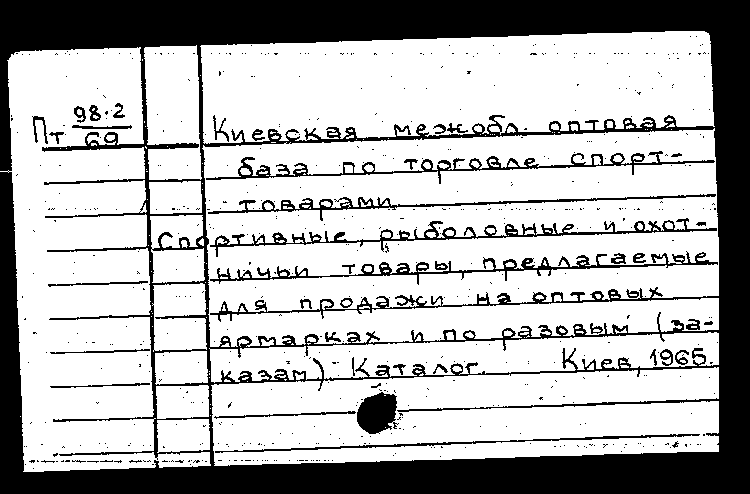 Пт 98.2
69
Киевская межобл. оптовая
база по торговле спорт-
товарами.
Спортивные, рыболовные и охот-
ничьи товары, предлагаемые
для продажи на оптовых
ярмарках и по разовым (за-
казам). Каталог. Киев, 1965.